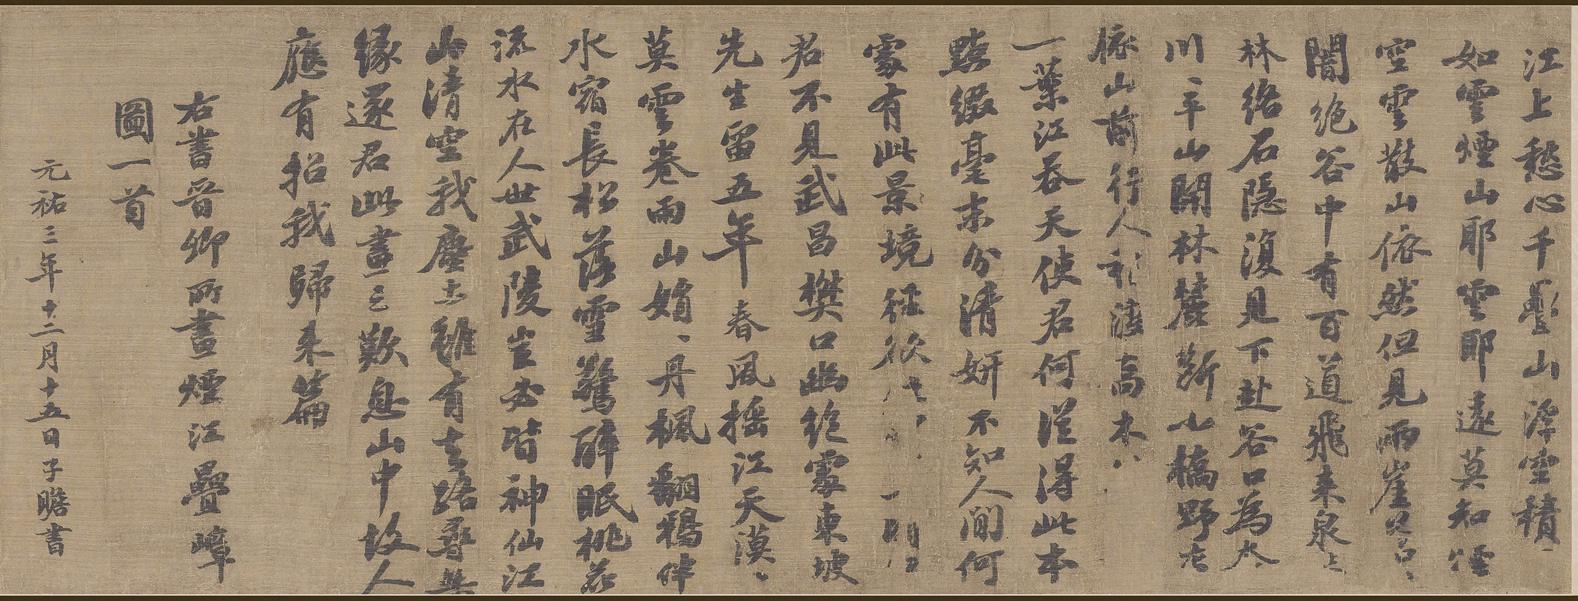 江上愁心千疊山浮空積
如雲煙山耶雲耶遠莫知煙
空雲散山依然但見兩崖
闇絕谷中有百道飛來泉
林絡石隱復見下赴谷口為
川平山開林麓斷小橋野店
依山前行人稍渡喬木
一葉江吞天使君何從得此本
點綴毫末分清妍不知人間何
處有此景徑欲
君不見武昌樊口幽絕處東坡
先生留五年春風搖江天漠〻
莫雲卷雨山娟〻丹楓翻鴉伴
水宿長松落雪驚醉眠桃花
流水在人世武陵豈必皆神仙江
山清空我塵土雖有去路尋無
緣還君此畫三歎息山中故人
應有招我歸來篇
右書晉卿所畫煙江疊嶂
圖一首
元祐三年十二月十五日子瞻書